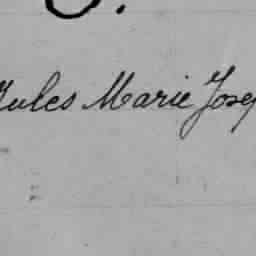 Jules Marie Josep